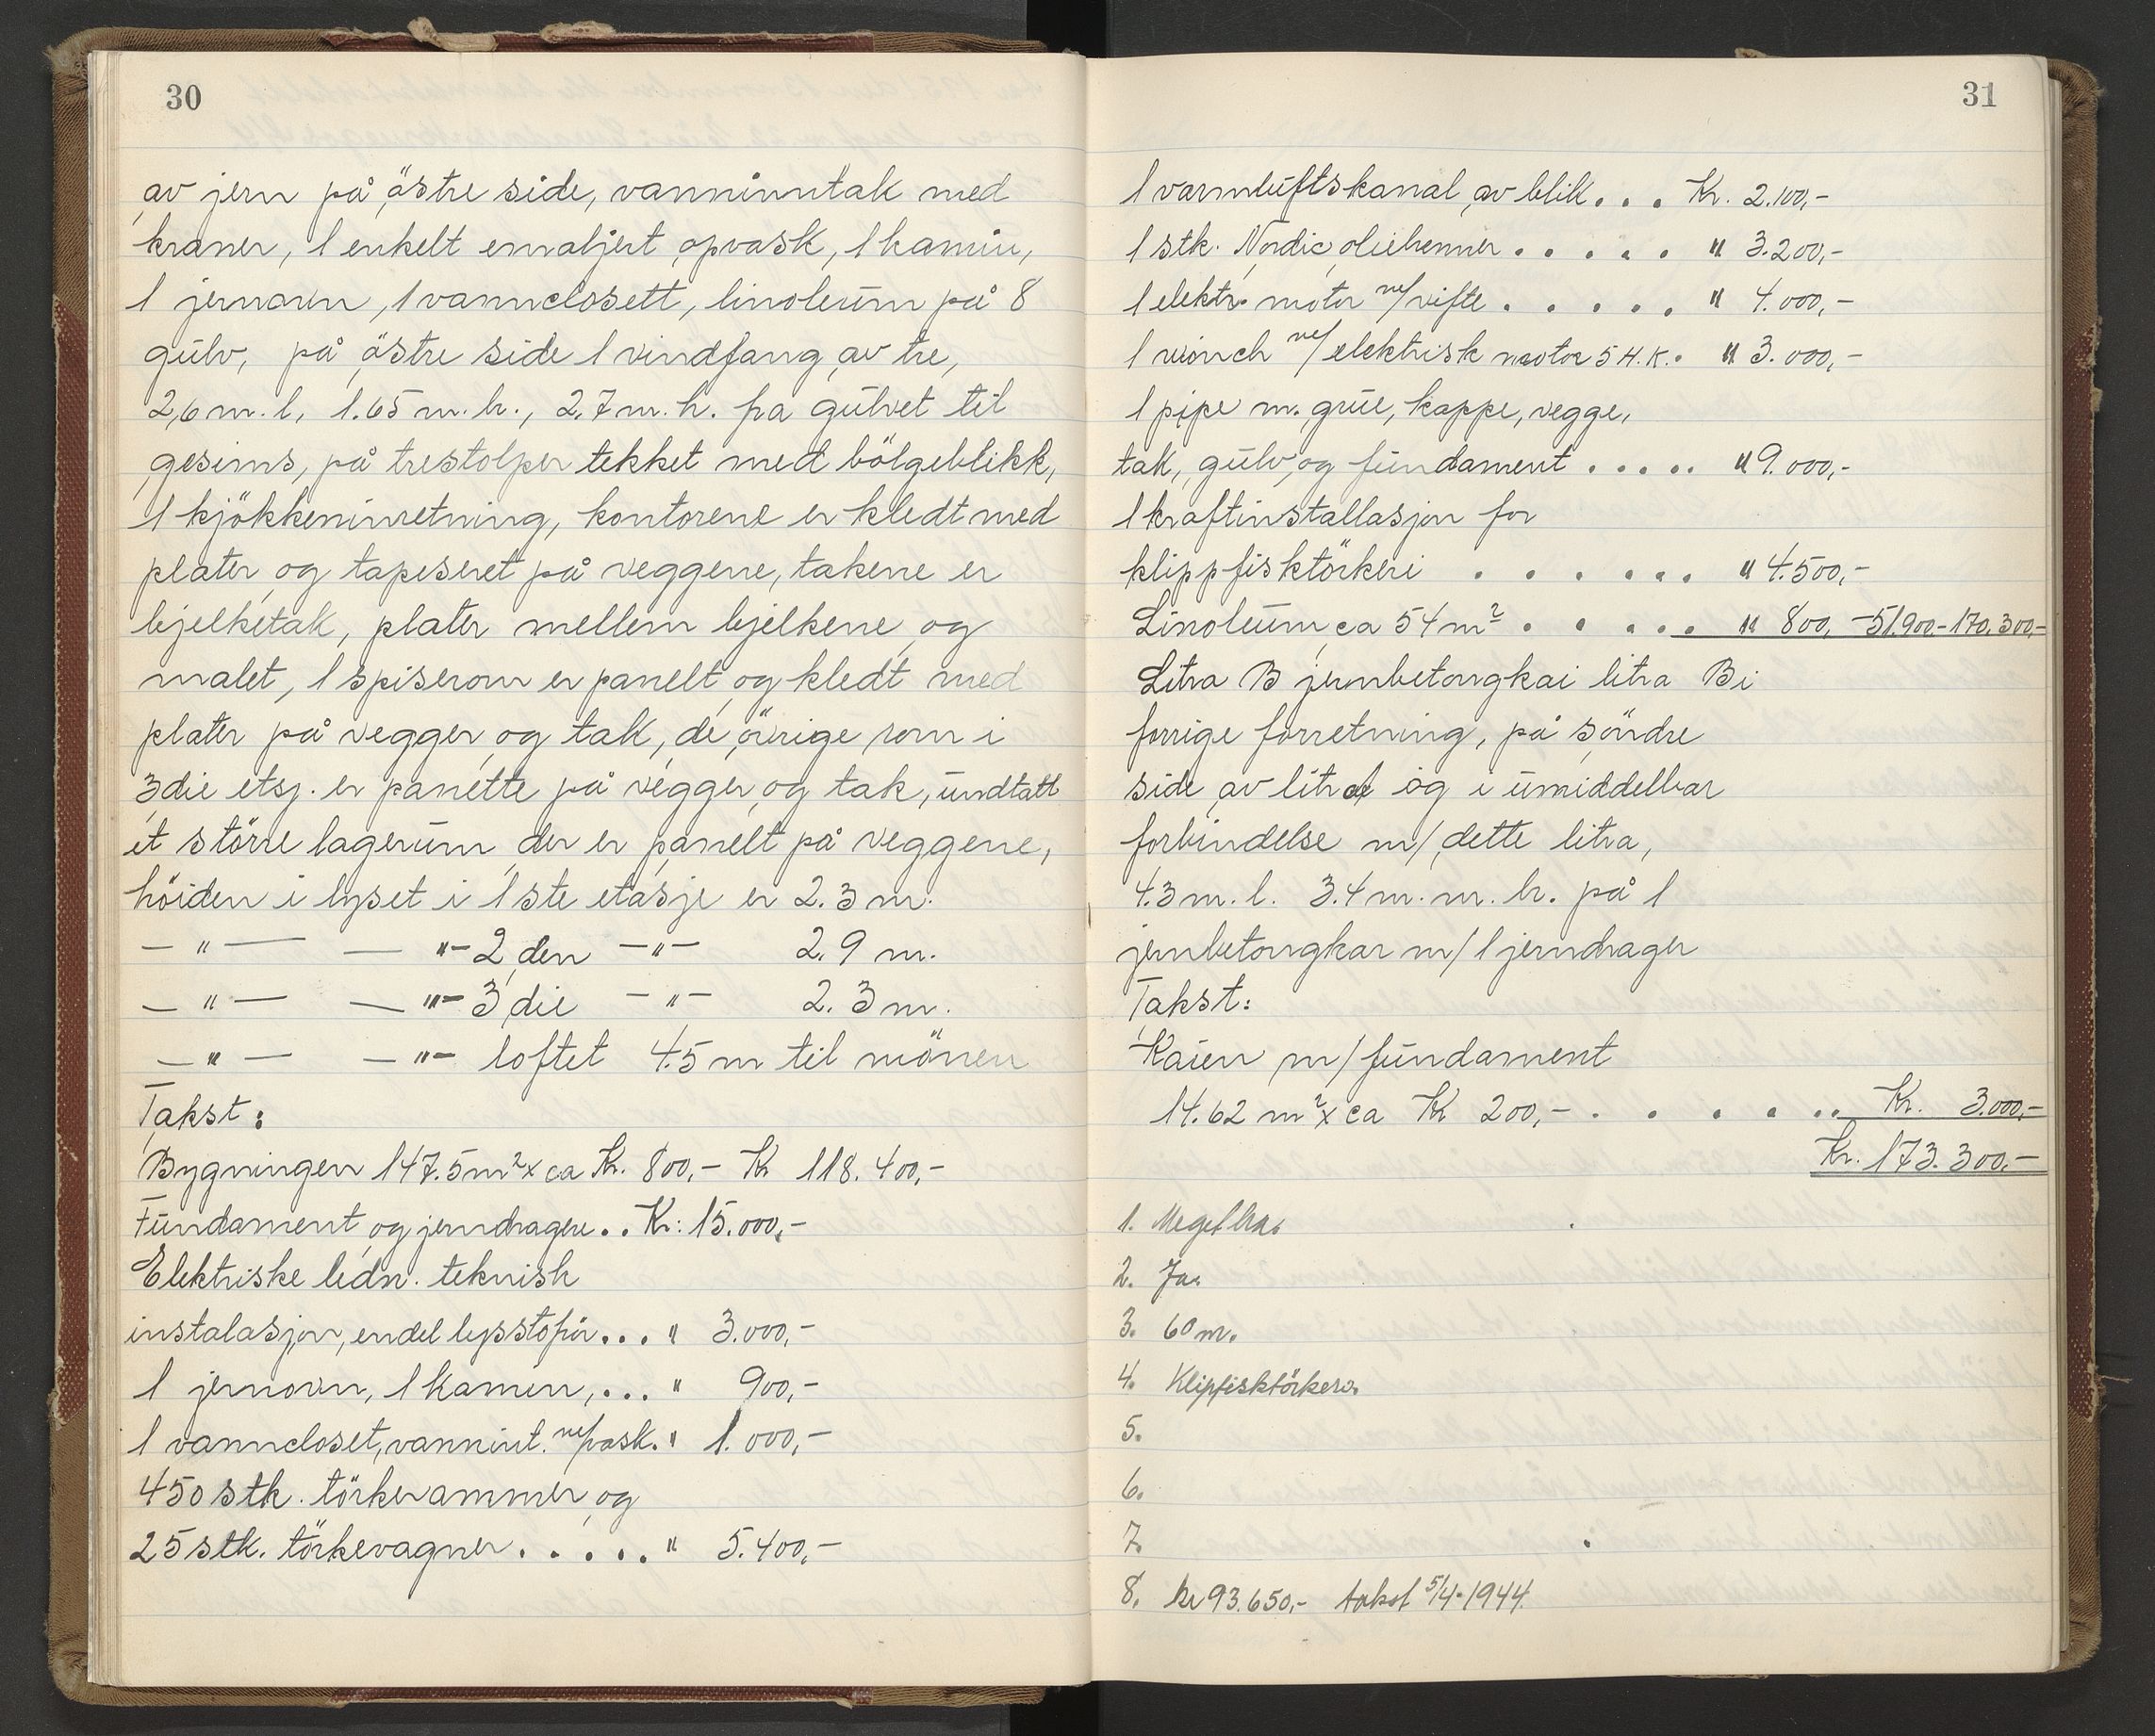 30
av jern på östre side, vanninntak med
kraner, 1 enkelt emaljert opvask, 1 kamin,
1 jernovn, 1 vannclosett, linoleum på 8
gulv, på östre side 1 vindfang av tre,
2,6 m. l, 1.65 m. br., 2.7 m. h. fra gulvet til
gesims, på trestolper tekket med bölgeblikk,
1 kjökkeninretning, kontorene er kledt med
plater og tapeseret på veggene, takene er
bjelketak, plater mellem bjelkene og
malet, 1 spiserom er panelt og kledt med
plater på vegger og tak, de övrige rom i
3die etsj. er panelte på vegger og tak, undtatt
et större lagerum der er panelt på veggene,
höiden i lyset i 1ste etasje er 2.3 m.
— " — — " — 2den — " — 2.9 m.
— " — — " — 3die — " — 2.3 m.
— " — — " — loftet 4.5 m til mönen
Takst:
Bygningen 147.5 m² x ca Kr. 800,- Kr 118.400,-
Fundament og jerndragere.. Kr: 15.000,-
Elektriske ledn. teknisk
instalasjon, endel lysstoför... " 3.000,-
1 jernovn, 1 Kamin,... " 900,-
1 vanncloset, vannint. m/vask. " 1.000,-
450 stk. törkerammer og
25 stk. törkevagner..... " 5.400,-
31
1 varmluftskanal av blik... Kr. 2.100,-
1 stk. Nordic oliebrenner..... " 3.200,-
1 elektr. motor m/vifte..... " 4.000,-
1 wionch m/elektrisk motor 5 H.K. " 3.000,-
1 pipe m. grue, kappe, vegge,
tak, gulv og fundament..... " 9.000,-
1 kraftinstallasjon for
klippfisktörkeri...... " 4.500,-
Linoleum ca 54 m²..... " 800,- 51.900- 170.300,-
Litra B jernbetongkai litra B i
forrige forretning, på söndre
side av litra A og i umiddelbar
forbindelse m/ dette litra,
4.3 m. l. 3.4 m. m. br. på 1
jernbetongkar m/ 1 jerndrager
Takst:
Kaien m/ fundament
14.62 m² x ca Kr 200,-...... Kr. 3.000,-
Kr. 173.300,-
1. Meget bra.
2. Ja.
3. 60 m.
4. Klipfisktörkeri.
5.
6.
7.
8. kr 93.650,- takst 5/4-1944.